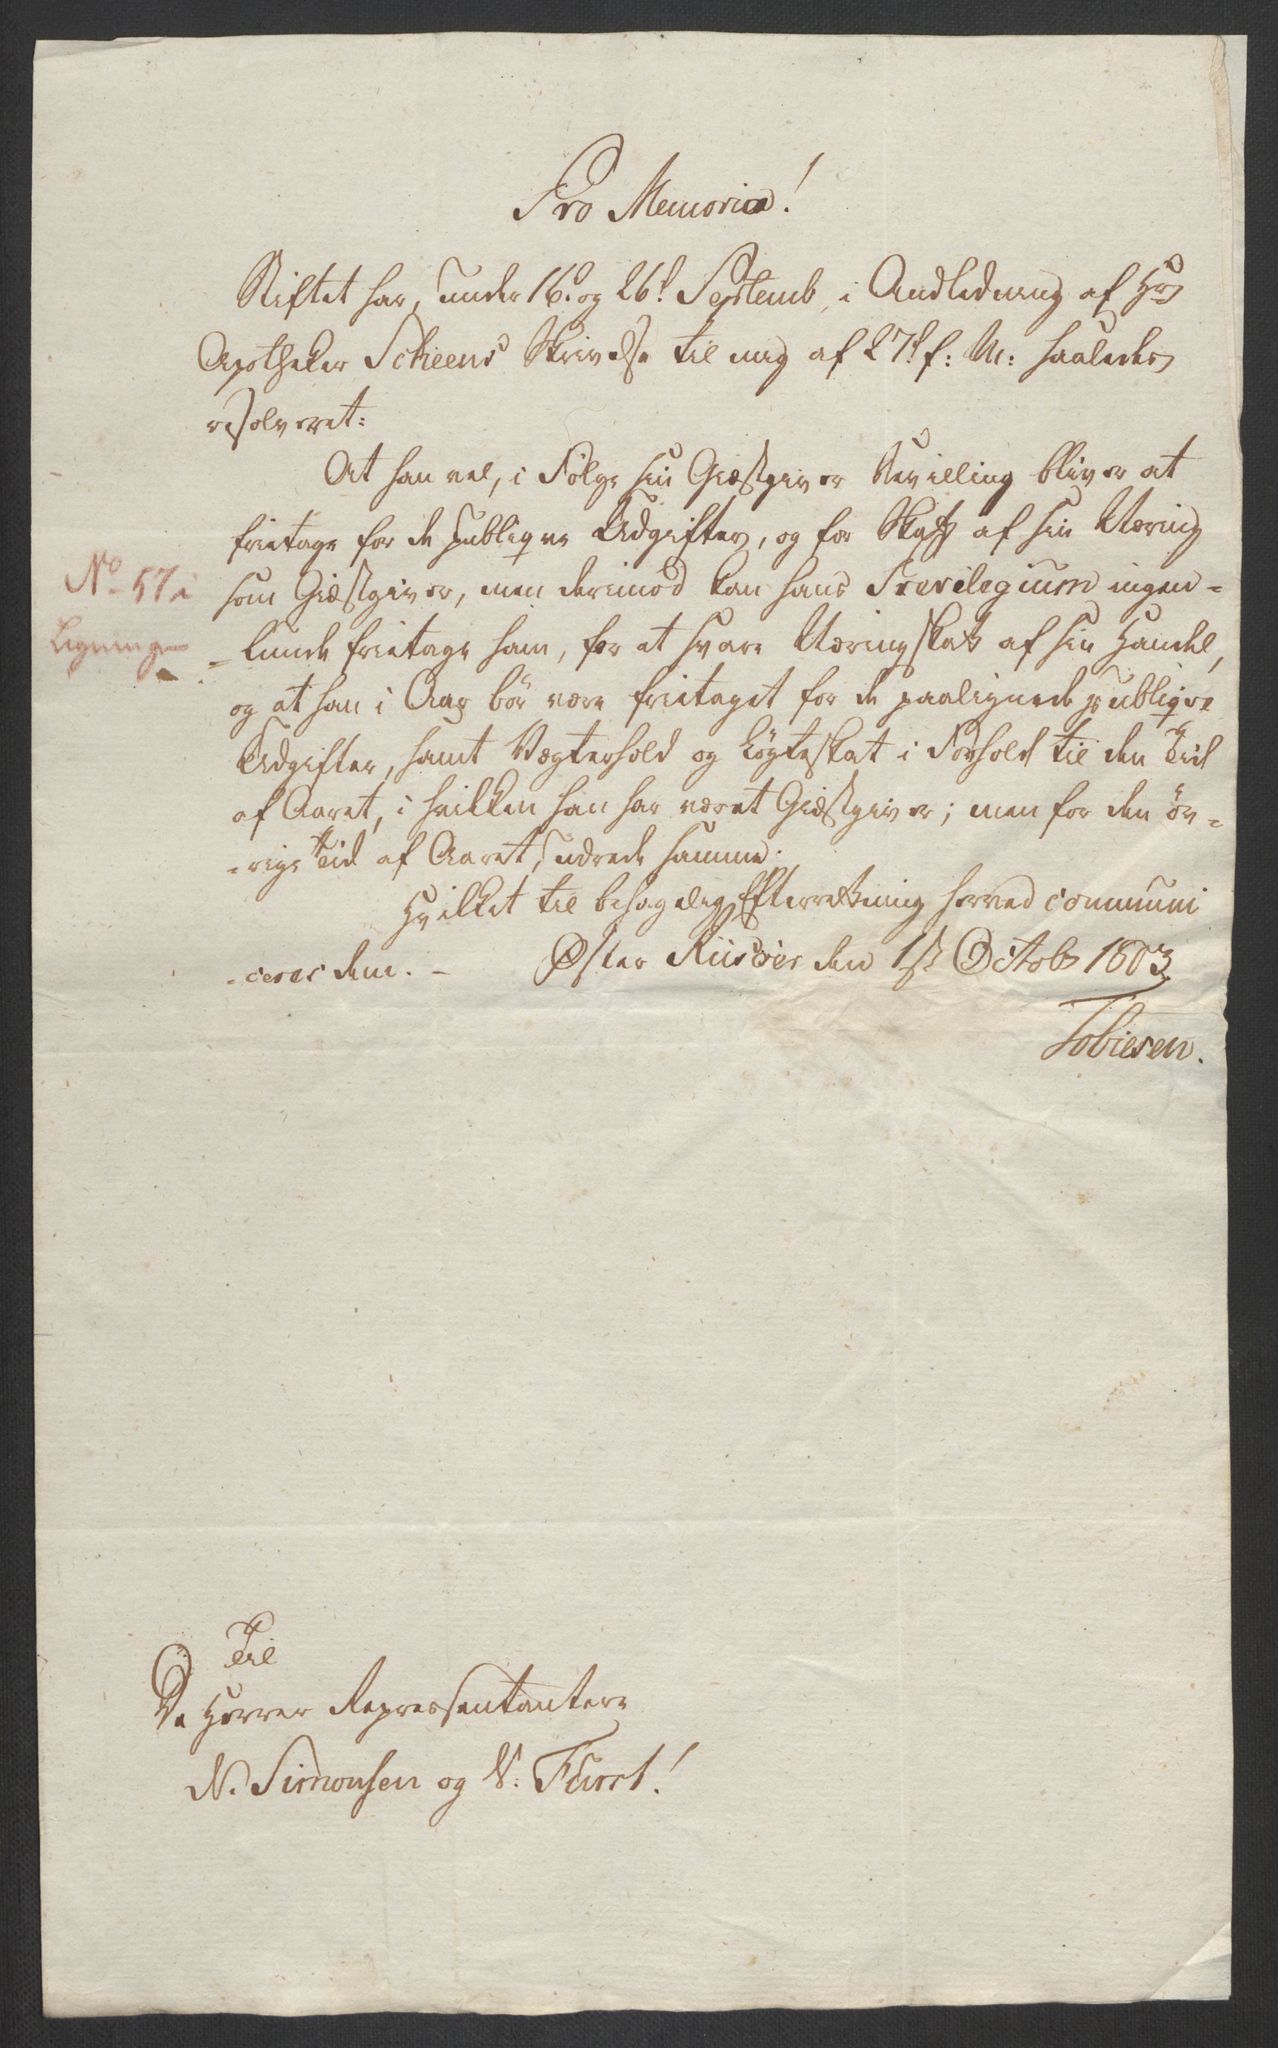 Pro Memoria!
Stiftet har, under 16d. og 26d. Septemb, i Andledning af Hrs
Apotheker Scheens Skrivelse til mig af 27d. f: M: saaledes
resolveret:
At han vel, i Følge sin Giæstgiver Bevilling bliver at
frietage for de publiqve Udgifter, og for Skatt af sin Næring
som Giæstgiver, men derimod kan hans Previlegium ingen-
-lunde frietage ham, for at svare Næringsskat af sin Handel,
No 57 i
Ligningen
og at han i Aar bör være frietaget for de paalignede publiqve
Udgifter, samt Vægterhold og Løgteskat i Forhold til den Tid
af Aaret, i hvilken han har været Giæstgiver; men for den öv-
-rige Tid af Aaret, udrede samme.
Hvilket til behagelig Efterretning herved communi
-ceres dem. - Øster Riisöer den 1st Octobr 1803.
Tobiesen.
Til
De Herrer Repressentantere
N. Simonsen og V: Furst!